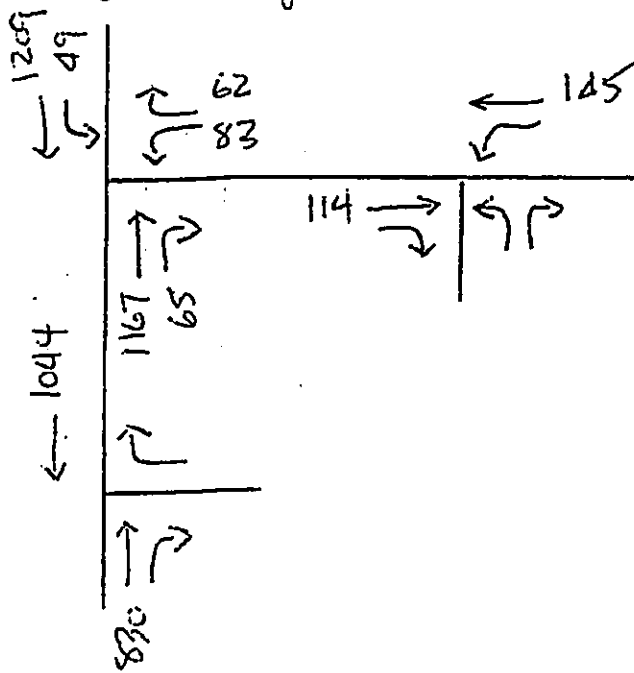 1209
49
62
83
145
114
1167
65
1044
830